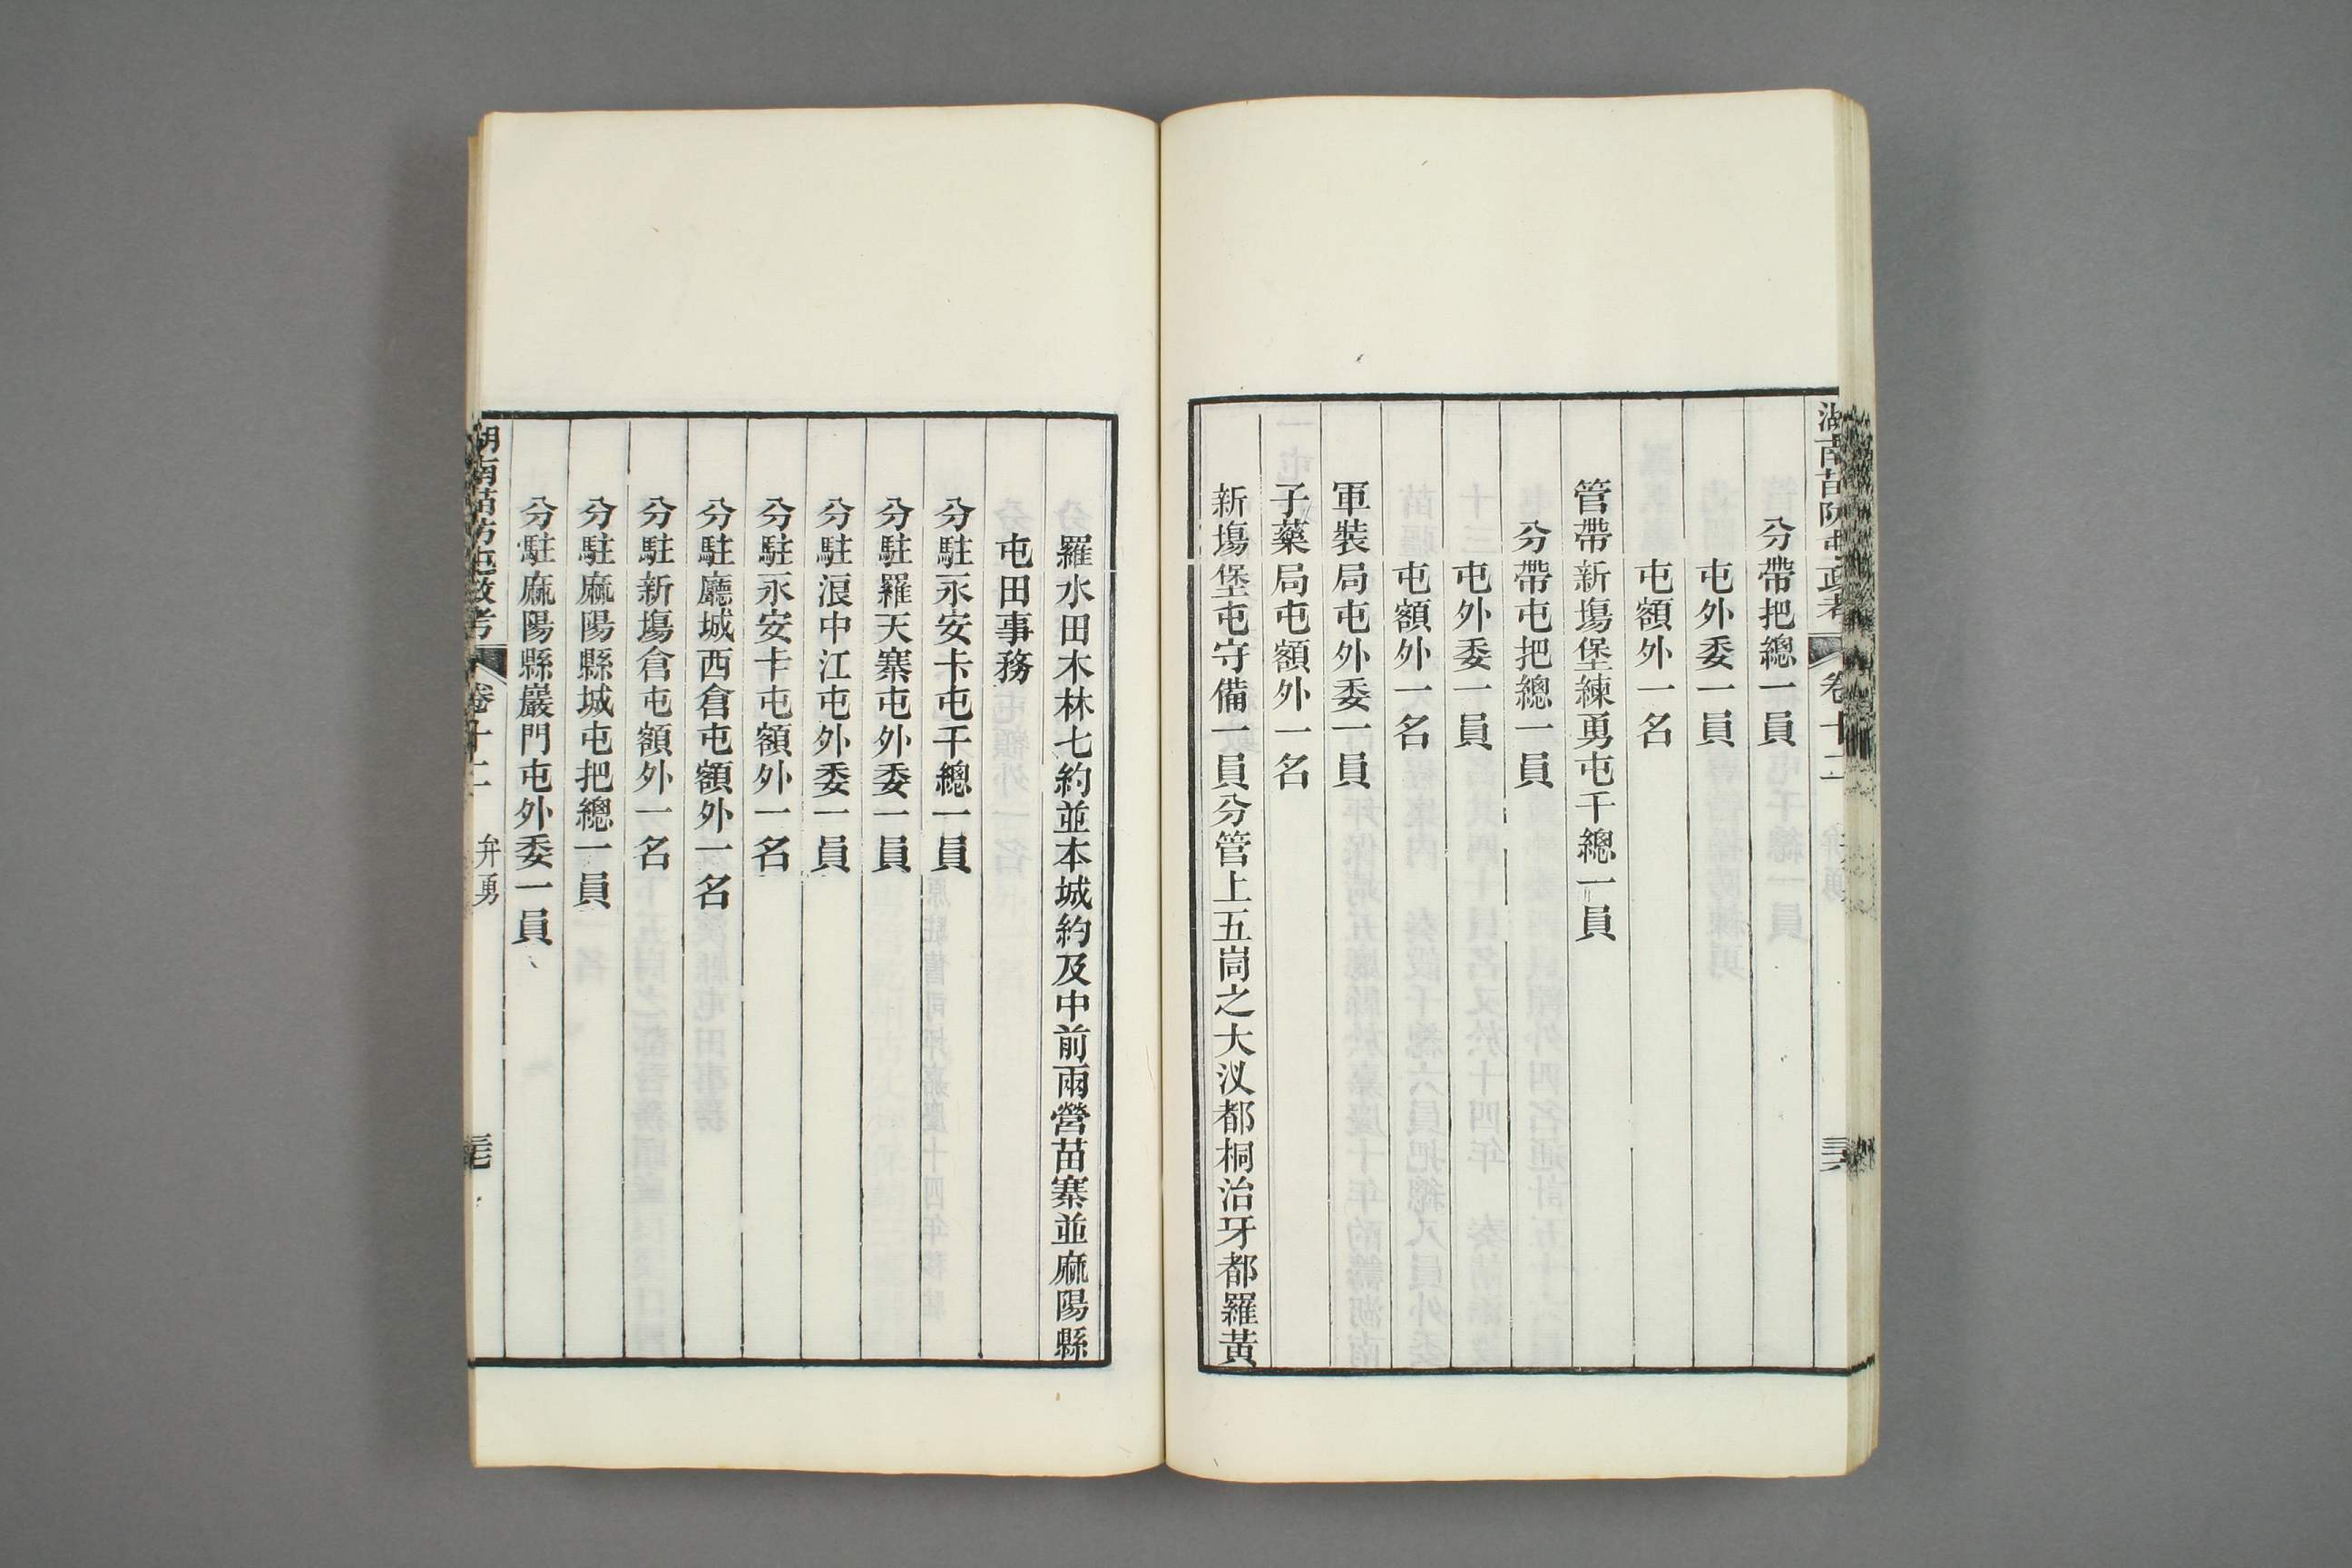 湖南苗防屯政考 卷十二
分帶把總一員
屯外委一員
屯額外一名
管帶新塲堡練勇屯千總一員
分帶屯把總一員
屯外委一員
屯額外一名
軍裝局屯外委一員
子藥局屯額外一名
新塲堡屯守備一員分管上五峝之大汊都桐治牙都羅黃
羅水田木林七約並本城約及中前兩營苗寨並麻陽縣
屯田事務
分駐永安卡屯千總一員
分駐羅天寨屯外委一員
分駐浪中江屯外委一員
分駐永安卡屯額外一名
分駐廳城西倉屯額外一名
分駐新塲倉屯額外一名
分駐麻陽縣城屯把總一員
分駐麻陽縣巖門屯外委一員
湖南苗防屯政考 卷十二 弁勇